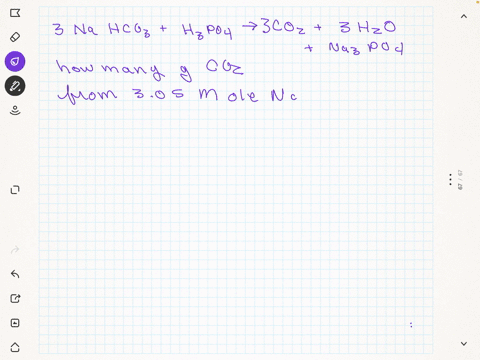 3 Na HCO3 + H3PO4 → 3CO2 + 3 H2O
+ Na3 PO4
how many g CO2
from 3.05 Mole Na